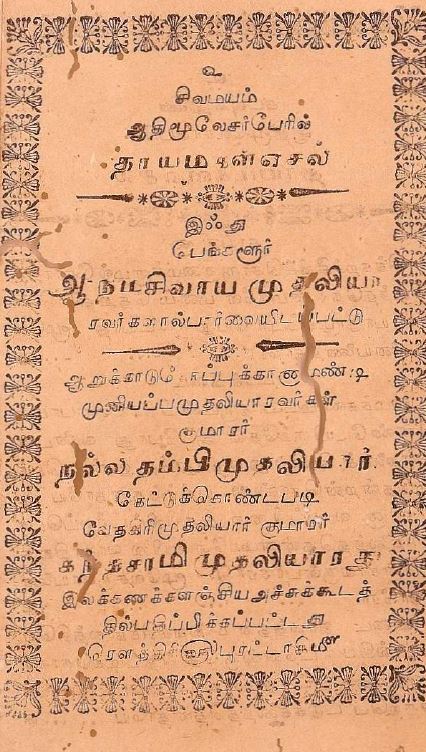 உ
சிவமயம்
ஆதிமூலேசர்பேரில்
இஃது
பேங்களூர்
ஆ நமசிவாய முதலியா
ரவர்களால்பார்வையிடப்பட்டு
முனியப்பமுதலியாரவர்கள்
குமாரர்
நல்லதம்பிமுதலியார்
கேட்டுக்கொண்டபடி
வேதகிரிமுதலியார் குமாரர்
கந்தசாமி முதலியாரது
இலக்கணக்களஞ்சிய அச்சுக்கூடத்
தில்பதிப்பிக்கப்பட்டது